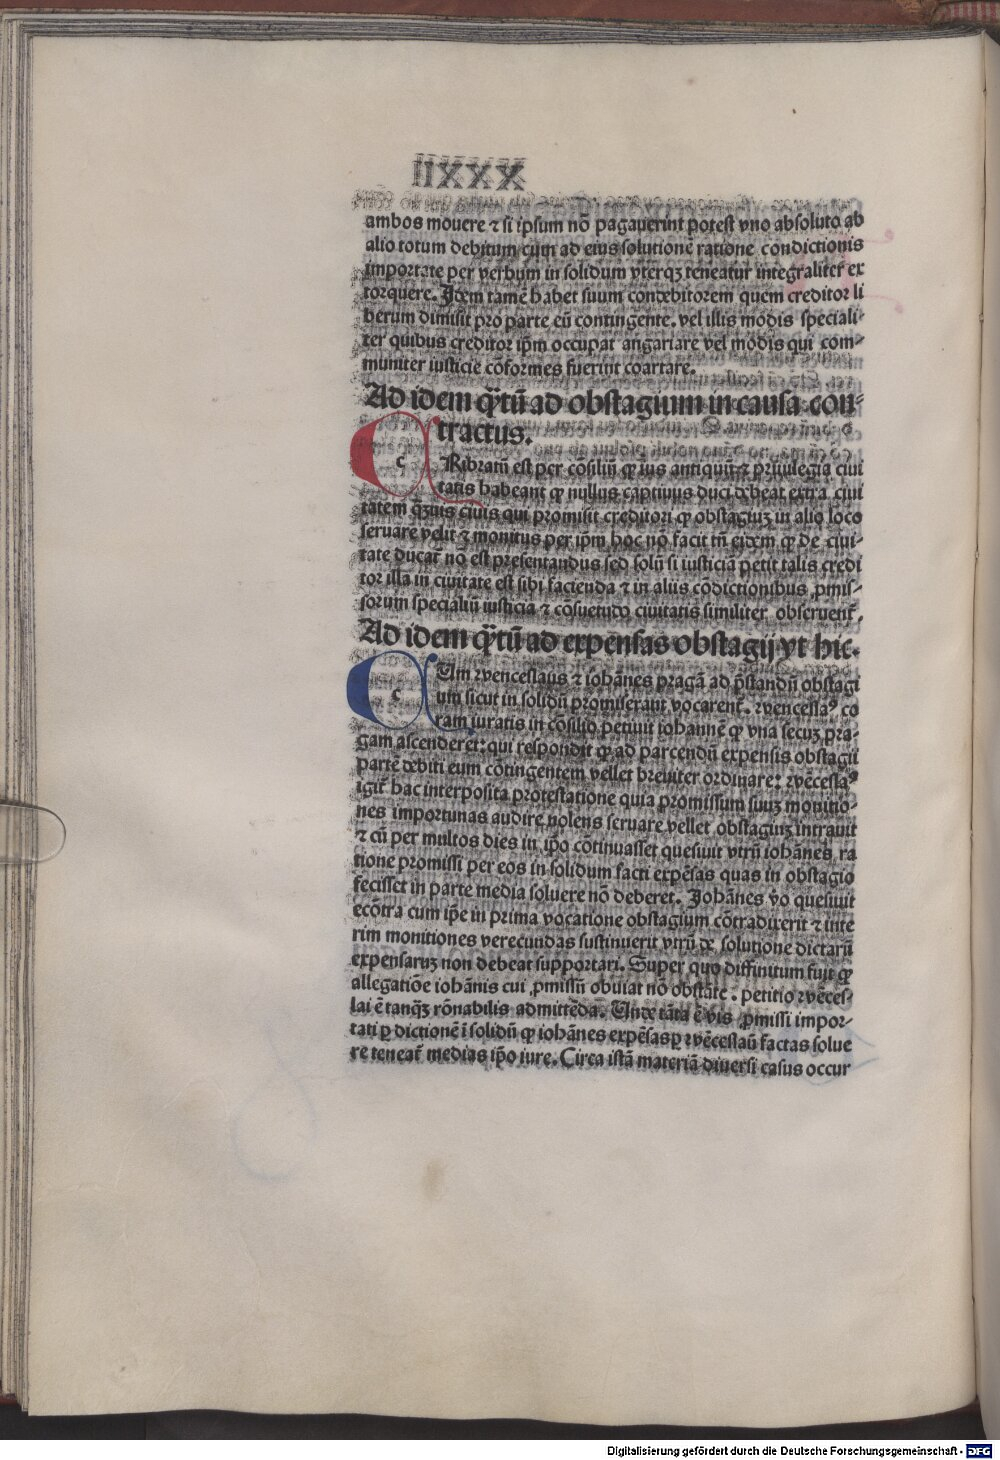 ambos mouere ⁊ si ipsum nō pagauerint potest vno absoluto ab
alio totum debitum cum ad eius solutionē ratione condictionis
importate per verbum in solidum vterqꝫ teneatur integraliter ex
torquere. Idem tamē habet suum condebitorem quem creditor li
berum dimisit pro parte eū contingente. vel illis modis speciali⸗
ter quibus creditor ip̄m occupat angariare vel modis qui com⸗
muniter iusticie cōformes fuerint coartare.
Ad idem q̄tū ad obstagium in causa con⸗
tractus.
c Ribratū est per cōsiliū ꝙ ius antiquū ⁊ priuilegia ciui
tatis habeant ꝙ nullus captiuus duci debeat extra ciui
tatem q̄ꝫuis ciuis qui promisit creditori ꝙ obstagiuꝫ in alio loco
seruare velit ⁊ monitus per ip̄m hoc nō facit tn̄ eidem ꝙ de ciui⸗
tate ducat̄ nō est presentandus sed solū si iusticiā petit talis credi
tor illa in ciuitate est sibi facienda ⁊ in aliis cōdictionibus ꝓmis⸗
sorum specialiū iusticia ⁊ cōsuetudo ciuitatis similiter obseruent̄.
Ad idem q̄tū ad expensas obstagij vt hic.
c Um wenceslaus ⁊ iohānes pragā ad p̄standū obstagi
um sicut in solidū promiserant vocarent̄. wenceslaꝰ co
ram iuratis in cōsilio petiuit iohannē ꝙ vna secuꝫ pra⸗
gam ascenderet: qui respondit ꝙ ad parcendū expensis obstagii
partē debiti eum cōtingentem vellet breuiter ordinare: wēceslaꝰ
igit̄ hac interposita protestatione quia promissum suuꝫ monitio⸗
nes importunas audire nolens seruare vellet obstagiuꝫ intrauit
⁊ cū per multos dies in ip̄o cōtinuasset quesiuit vtrū iohānes ra
tione promissi per eos in solidum facti expēsas quas in obstagio
fecisset in parte media soluere nō deberet. Johānes v̄o quesiuit
ecōtra cum ip̄e in prima vocatione obstagium cōtradixerit ⁊ inte
rim monitiones verecundas sustinuerit vtrū de solutione dictarū
expensaruꝫ non debeat supportari. Super quo diffinitum fuit ꝙ
allegatiōe iohānis cui ꝓmissū obuiat nō obstāte. petitio wēces⸗
lai ē tanqꝫ rōnabilis admittēda. Unde tāta ē vis ꝓmissi impor⸗
tati ꝑ dictionē ī solidū ꝙ iohānes expēsas ꝑ wēceslaū factas solue
re teneat̄ medias ip̄o iure. Circa istā materiā diuersi casus occur
Digitalisierung gefördert durch die Deutsche Forschungsgemeinschaft - DFG